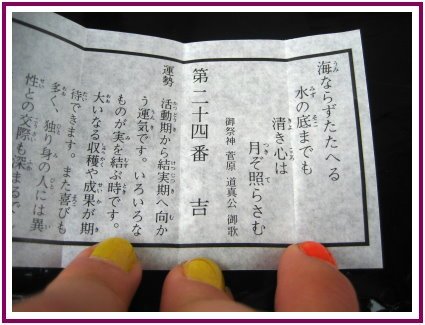 海ならずたたへる
水の底までも
清き心は
月ぞ照らさむ
御祭神 菅原 道真公 御歌
第二十四番 吉
運勢 活動期から結実期へ向か
う運気です。いろいろな
ものが実を結ぶ時です。
大いなる収穫や成果が期
待できます。また喜びも
多く、独り身の人には異
性との交際も深まるで